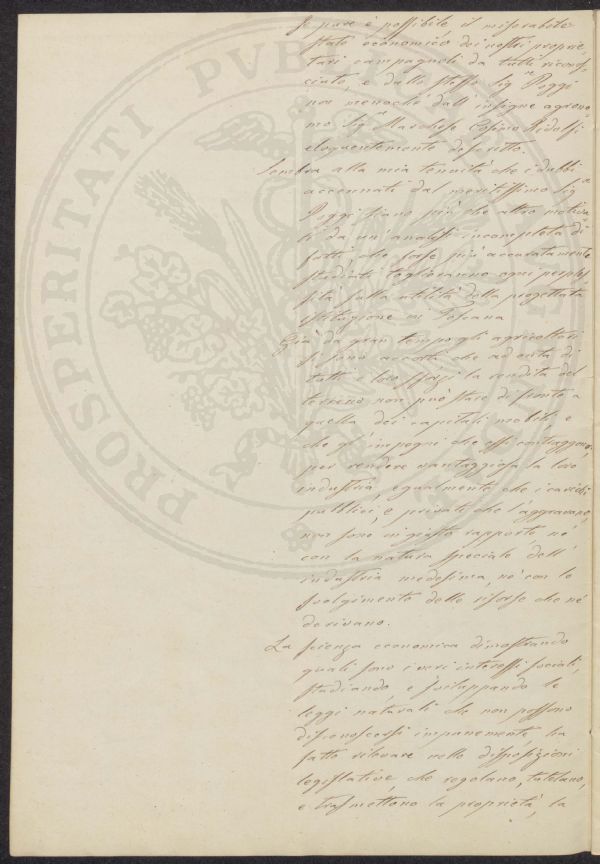 Se pure è possibile il miserabile
stato economico dei nostri proprie-
tari campagnoli da tutti ricono-
sciuto, e dallo stesso Sigr Poggi
non menochè dall'insigne agrono-
mo Sigr Marchese Cosimo Ridolfi
eloquentemente descritto.
Sembra alla mia tenuità che i dubbi
accennati dal meritissimo Sigr
Poggi siano più che altro motiva-
ti da un'analisi incompleta di
fatti, che forse più accuratamente
studiati toglieranno ogni perples-
sità sulla utilità della progettata
istituzione in Toscana
Già da gran tempo gli agricoltori
si sono accorti che ad onta di
tutti i loro sforzi la rendita del
terreno non può stare di fronte a
quella dei capitali mobili, e
che gl'impegni che essi contraggono,
per rendere vantaggiosa la loro
industria, egualmente che i carichi
pubblici, e privati che l'aggravano,
non sono in giusto rapporto nè
con la natura speciale dell'
industria medesima, nè con lo
svolgimento delle risorse che ne
derivano.
La scienza economica dimostrando
quali sono i veri interessi sociali,
studiando, e sviluppando le
leggi naturali che non possono
disconoscersi impunemente, ha
fatto rilevare nelle disposizioni
legislative, che regolano, tutelano,
e trasmettono la proprietà, la
PROSPERITATI PUB